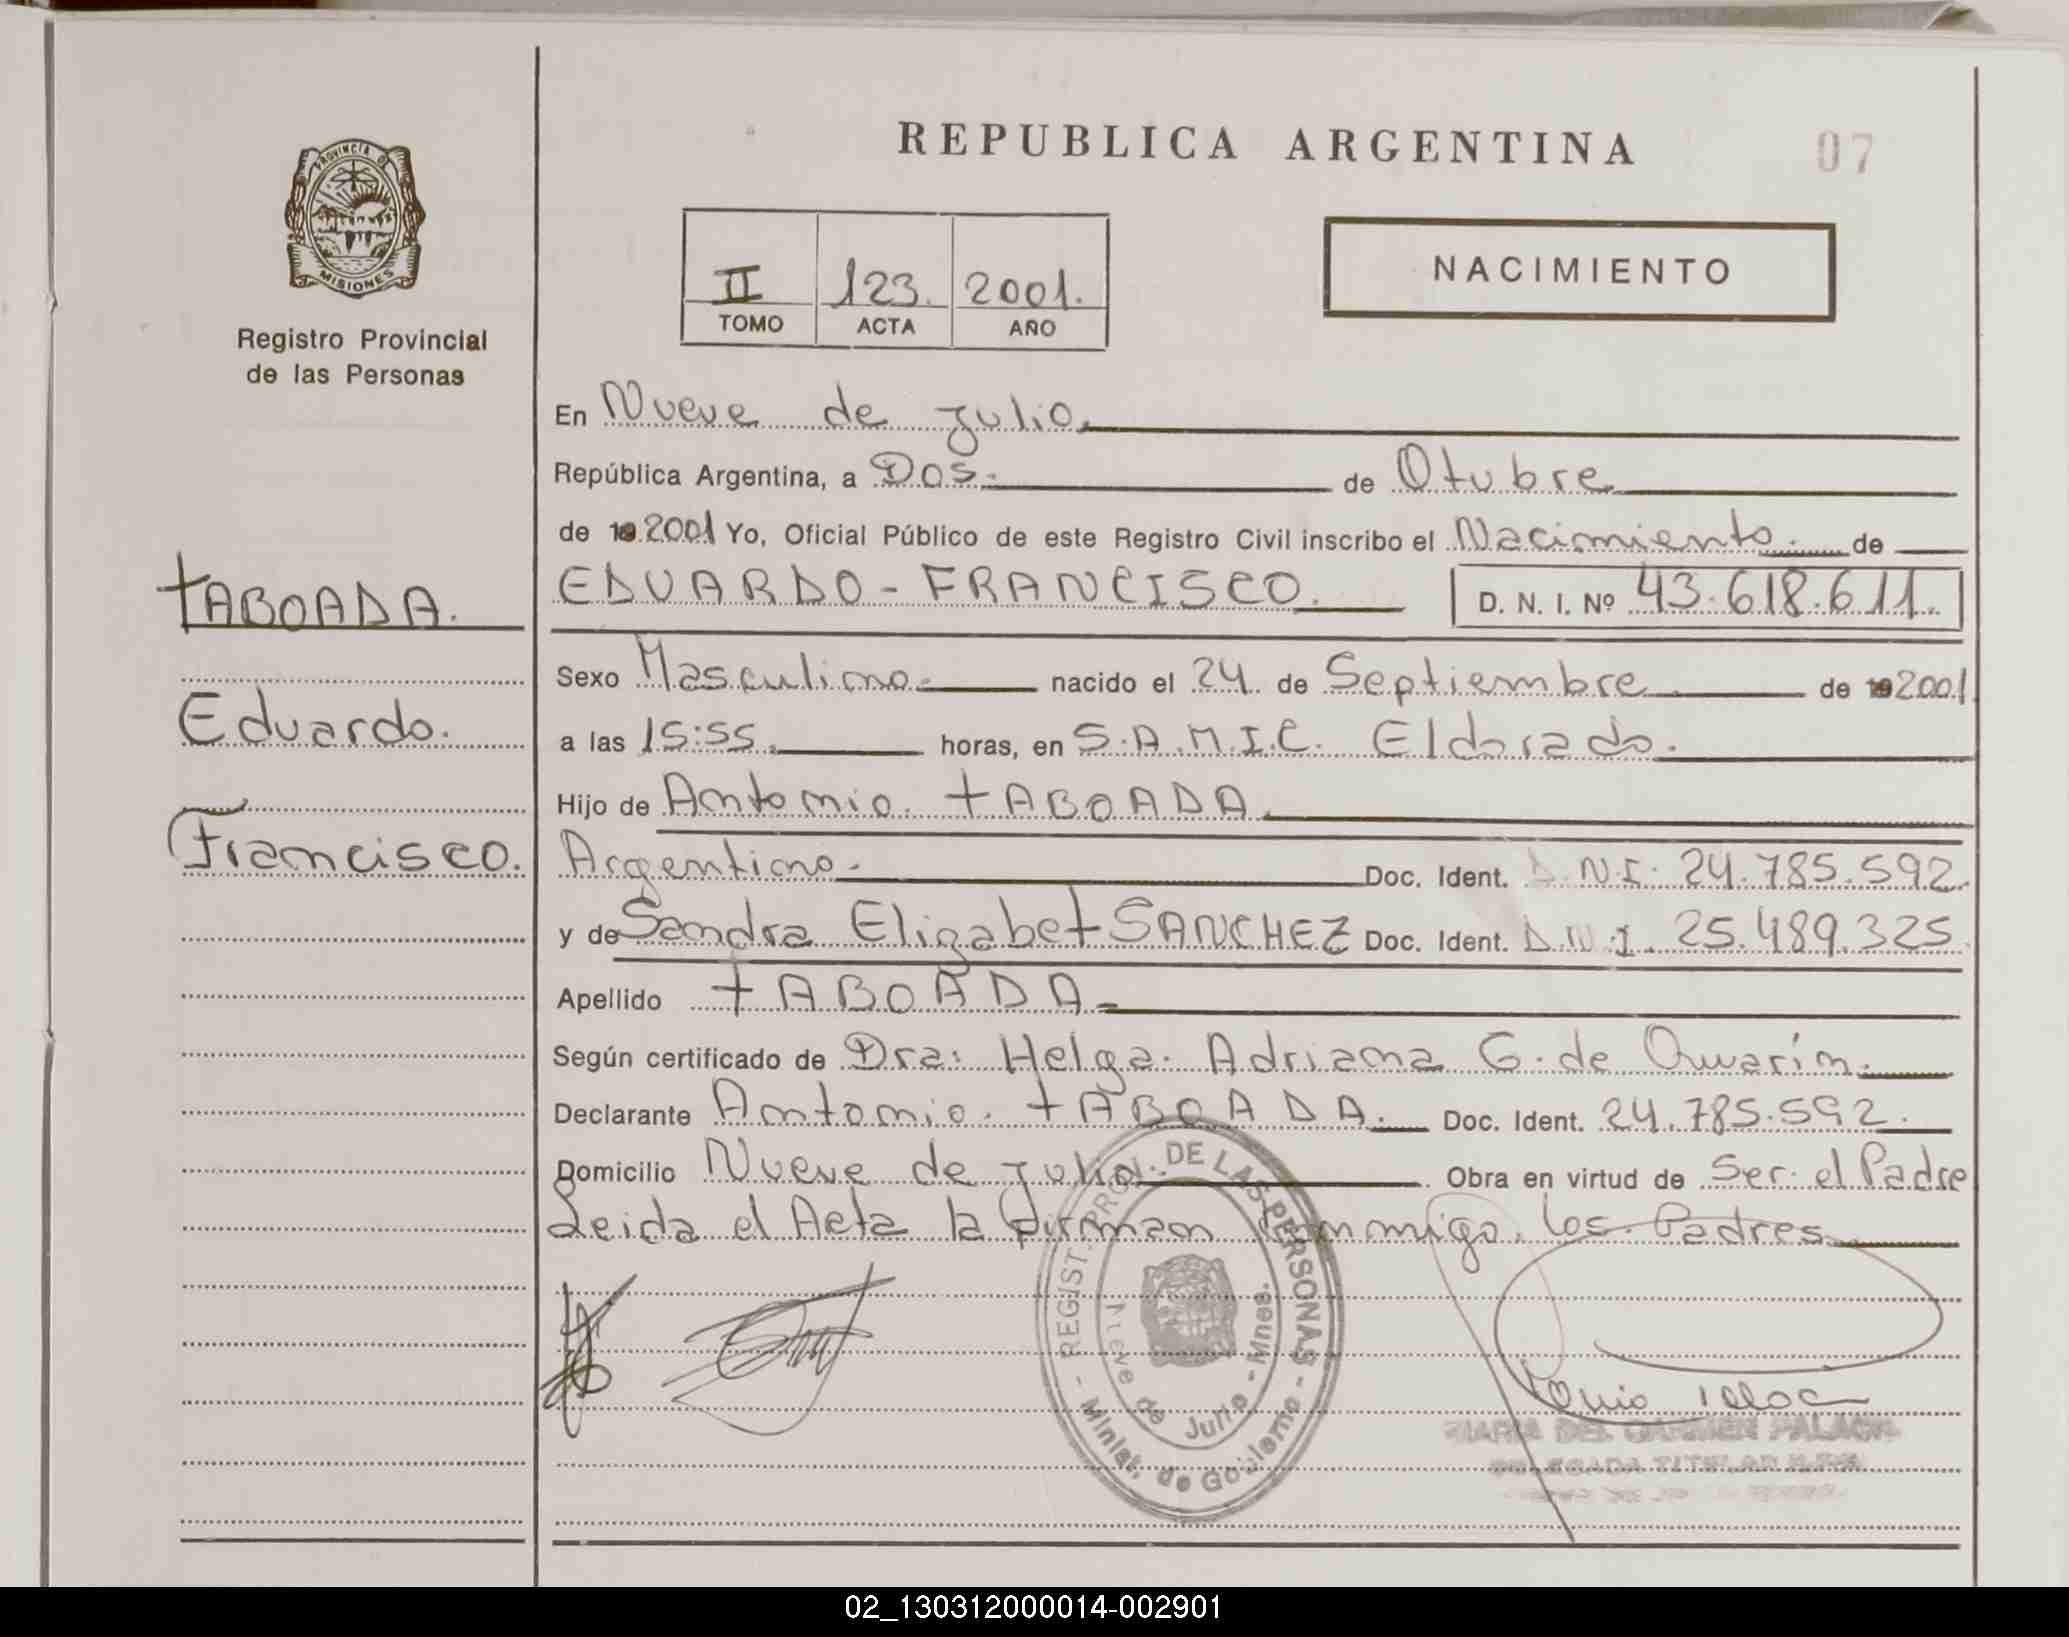 REPUBLICA ARGENTINA
07
PROVINCIA DE
MISIONES
Registro Provincial
de las Personas
II 123. 2001.
TOMO ACTA AÑO
NACIMIENTO
En Nueve de Julio.
República Argentina, a Dos. de Otubre
de 19 2001 Yo, Oficial Público de este Registro Civil inscribo el Nacimiento. de
TABOADA.
EDUARDO - FRANCISCO. D. N. I. Nº 43.618.611.
Sexo Masculino. nacido el 24 de Septiembre de 19 2001
Eduardo.
a las 15:55. horas, en S.A.M.I.C. Eldorado.
Hijo de Antonio TABOADA.
Francisco.
Argentino. Doc. Ident. D.N.I. 24.785.592.
y de Sandra Elizabet SANCHEZ Doc. Ident. D.N.I. 25.489.325
Apellido TABOADA
Según certificado de Dra: Helga. Adriana G. de
Declarante Antonio. TABOADA. Doc. Ident. 24.785.592.
Domicilio Nueve de Julio. Obra en virtud de Ser el Padre
Leida el Acta la firman conmigo los Padres
REGIST. PROV. DE LAS PERSONAS
Nueve de Julio - Mnes.
- Minist. de Gobierno -
MARIA DEL CARMEN
DELEGADA TITULAR
02_130312000014-002901